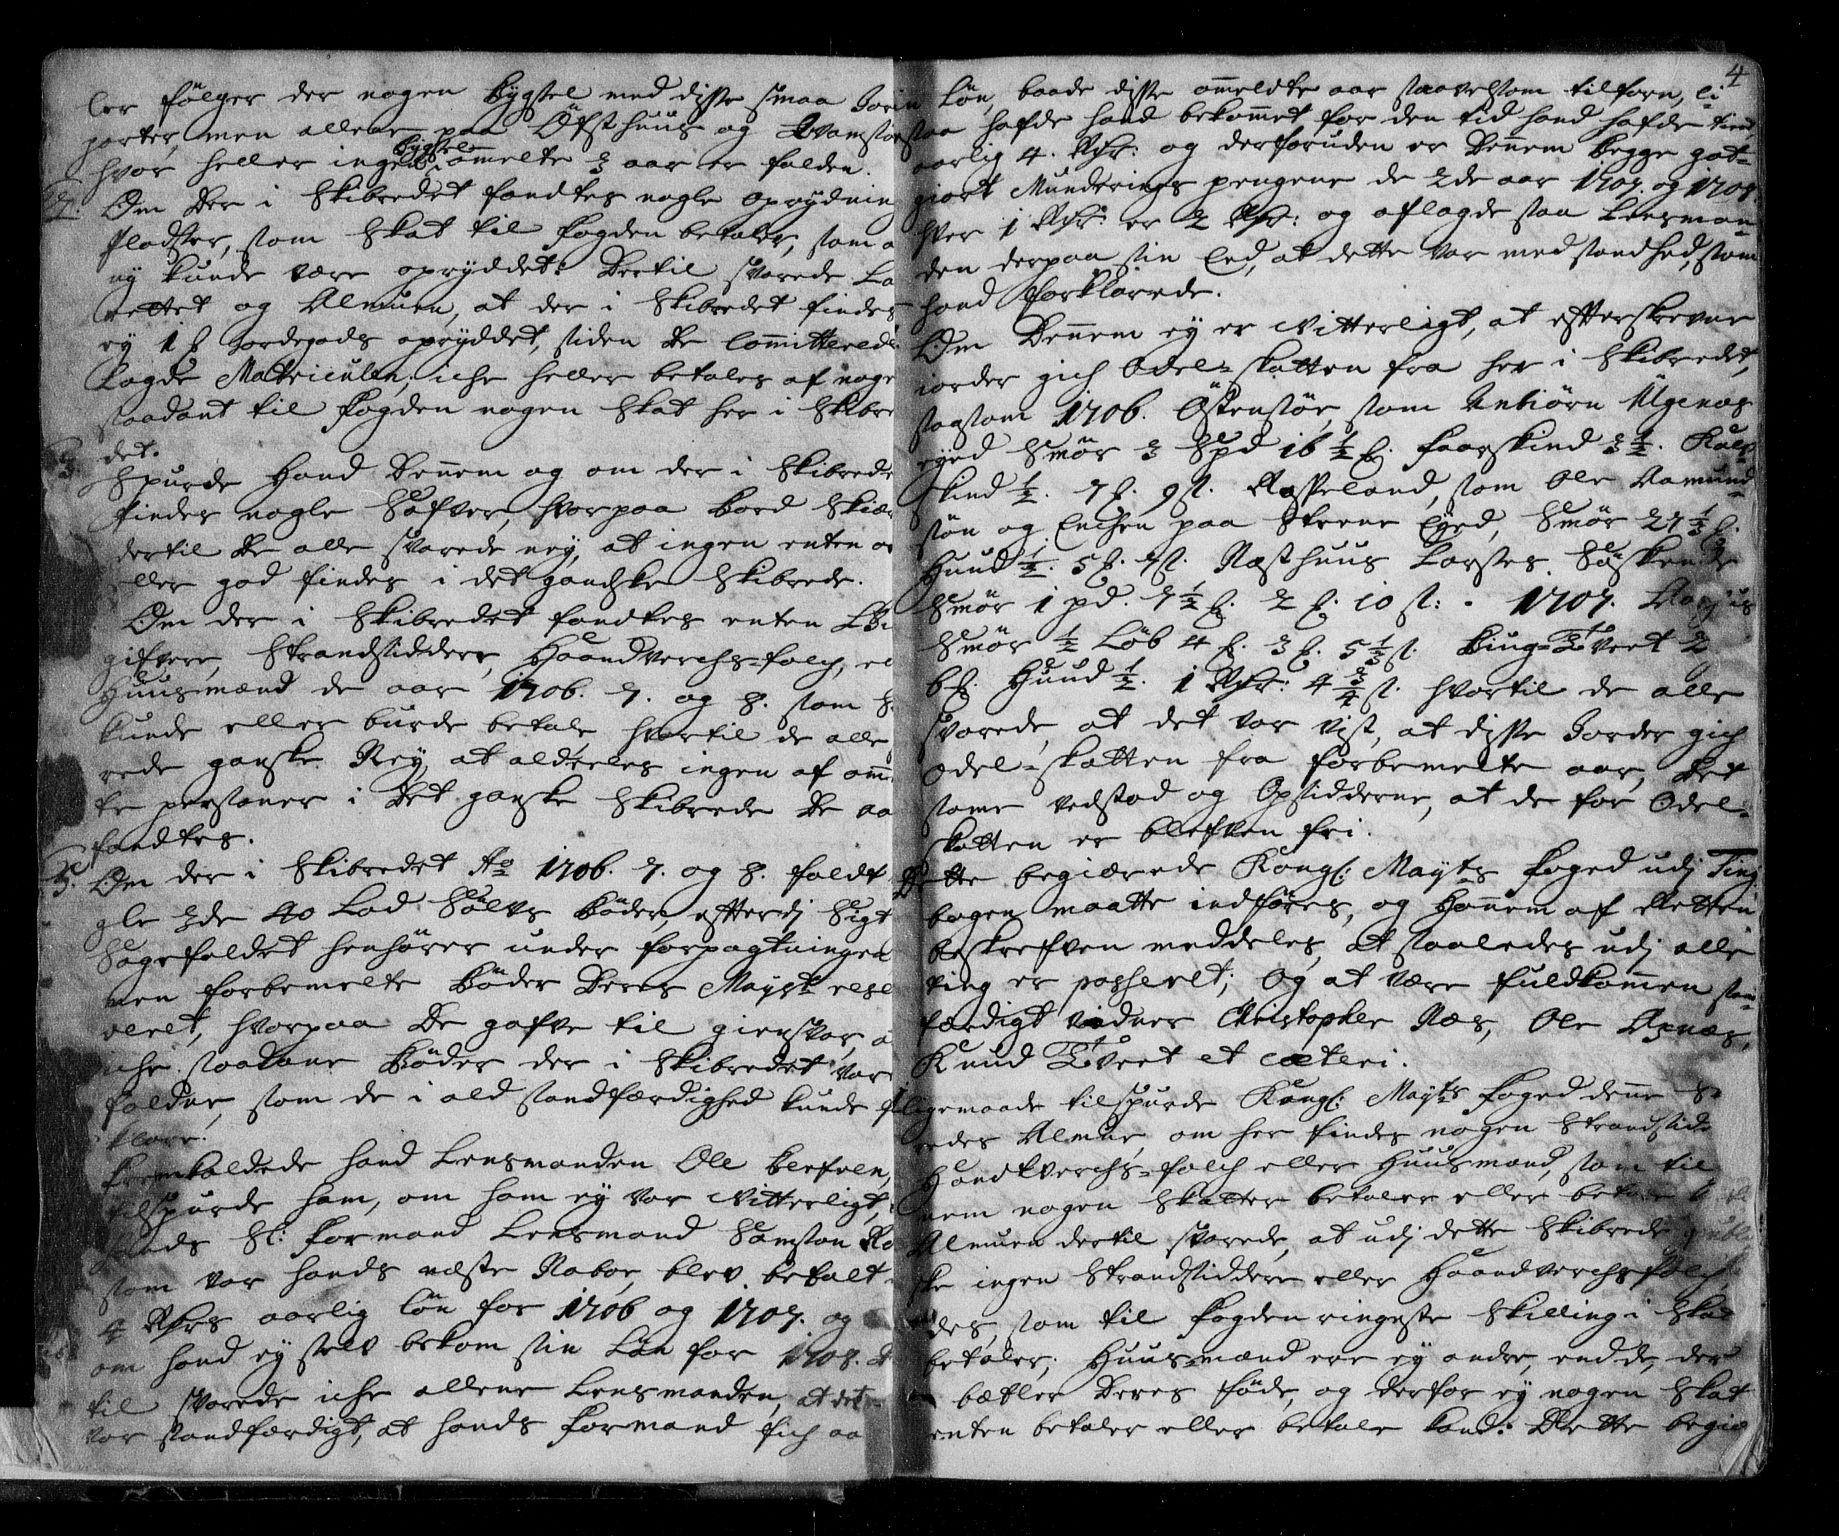 ler følger der nogen bygsel med disse smaa Jorde
parter, men allene paa Øfsthuus og
hvor heller ingen bygsel i ommelte 3 aar er falden.
2. Om der i Skibredet fandtes nogle oprydnings
pladtzer, som Skat til fogden betaler, som a
ny kunde være opryddet: Dertil svarede La
rettet og Almuen, at der i Skibredet findes
ey 1 ß Jordegods opryddet, siden de Committerede
lagde Matriculen; iche heller betales af noge
saadant til fogden nogen Skat her i Skibre
det.
3. Spurde Hand Dennem og om der i Skibrede
findes nogle Saufver, hvorpaa bord Skiær
dertil de alle svarede ney, at ingen enten o
eller god findes i det gandske Skibrede.
Om der i Skibredet fandtes enten
gifvere, Strandsiddere, Haandverchs-folch, el
Huusmænd de aar 1706. 7. og 8. som S
kunde eller burde betale hvortil de alle
rede ganske Ney, at aldeeles ingen af omme
te personer i det ganske Skibrede de aa
fandtes.
5. Om der i Skibredet Ao 1706. 7. og 8. faldt
gle 3de 40 Lod Sølvs bøder, efterdj Sigt
Sagefaldet henhører under forpagtningen
men forbemelte bøder Deres Mayst rese
veret, hvorpaa De gafve til giensvar, a
iche saadane bøder der i Skibredet var
faldne, som de i ald sandfærdighed kunde f
klare.
Fremkaldede hand Lensmanden Ole Berfven,
tilspurde ham, om ham ey var vitterligt,
hands Sl: formand Lensmand Samson
som var hands næste Naboe, blev betalt
4 Rdrs aarlig løn for 1706 og 1707. og
om hand ey selv bekom sin Løn for 1708. D
til svarede iche allene Lensmanden, at det
var sandfærdigt, at hands formand fich aa
4
Løn, baade disse ommeldte aar saavelsom tilforn, li
saa hafde hand bekommet for den tid hand hafde tient
aarlig 4. Rdr: og derforuden er Dennem begge got-
giort Munderings pengene de 2de aar 1707. og 1708
hver 1 Rdr: er 2 Rdr: og aflagde saa Lensman-
den derpaa sin Eed, at dette var med sandhed, som
hand forklarede.
Om Dennem ey er vitterligt, at efterskrevne
iorder gich Odel-skatten fra her i Skibredet,
saasom 1706. Østensiør, som Anbiørn Algenæs
eyed Smør 3 Spd 16 1/2 ß. faarskind 3 1/2. Kalf
skind 1/2. 7 ß. 9 st. Røsseland, som Ole Aamund-
søn og Enchen paa Steene Eyed, Smør 27 1/2 ß.
Huud 1/2. 5 ß. 4 st. Næsthuus Larsses Søskende
Smør 1 pd. 7 1/2 ß. 2 ß. 10 st: . 1707.
Smør 1/2 Løb 4 ß. 3 ß. 5 1/3 st.
6 ß. Huud 1/2. 1 Rdr: 4 3/4 st. hvortil de alle
svarede, at det var vist, at disse Jorder gich
Odel-skatten fra forbemelte aar, Det
samme vedstod og Opsidderne, at de for Odel-
skatten er blefven fri.
Dette begiærede Kongl: Mayts foged udj Ting
bogen maatte indføres, og Hannem af Retten
beskrefven meddeles, at saaledes udj alle
ting er passeret; Og at være fuldkommen san-
færdigt vidner Christopher Næs, Ole
Knud Tvet et cæteri.
Ligemaade tilspurde Kongl: Mayts foged denne S-
redes Almue, om her findes nogen Strandsid
Handtverchs-folch eller Huusmænd, som til
nem nogen Skatter betaler eller betale
Almuen dertil svarede, at udj dette Skibrede
ske ingen Strandsiddere eller Haandverchsfolch
des, som til fogden ringeste Skilling i Skat
betaler; Huusmænd ere ey andre, end de, der
bætler Deres føde, og derfor ey nogen Skat
enten betaler eller betale kand. Dette begiæ